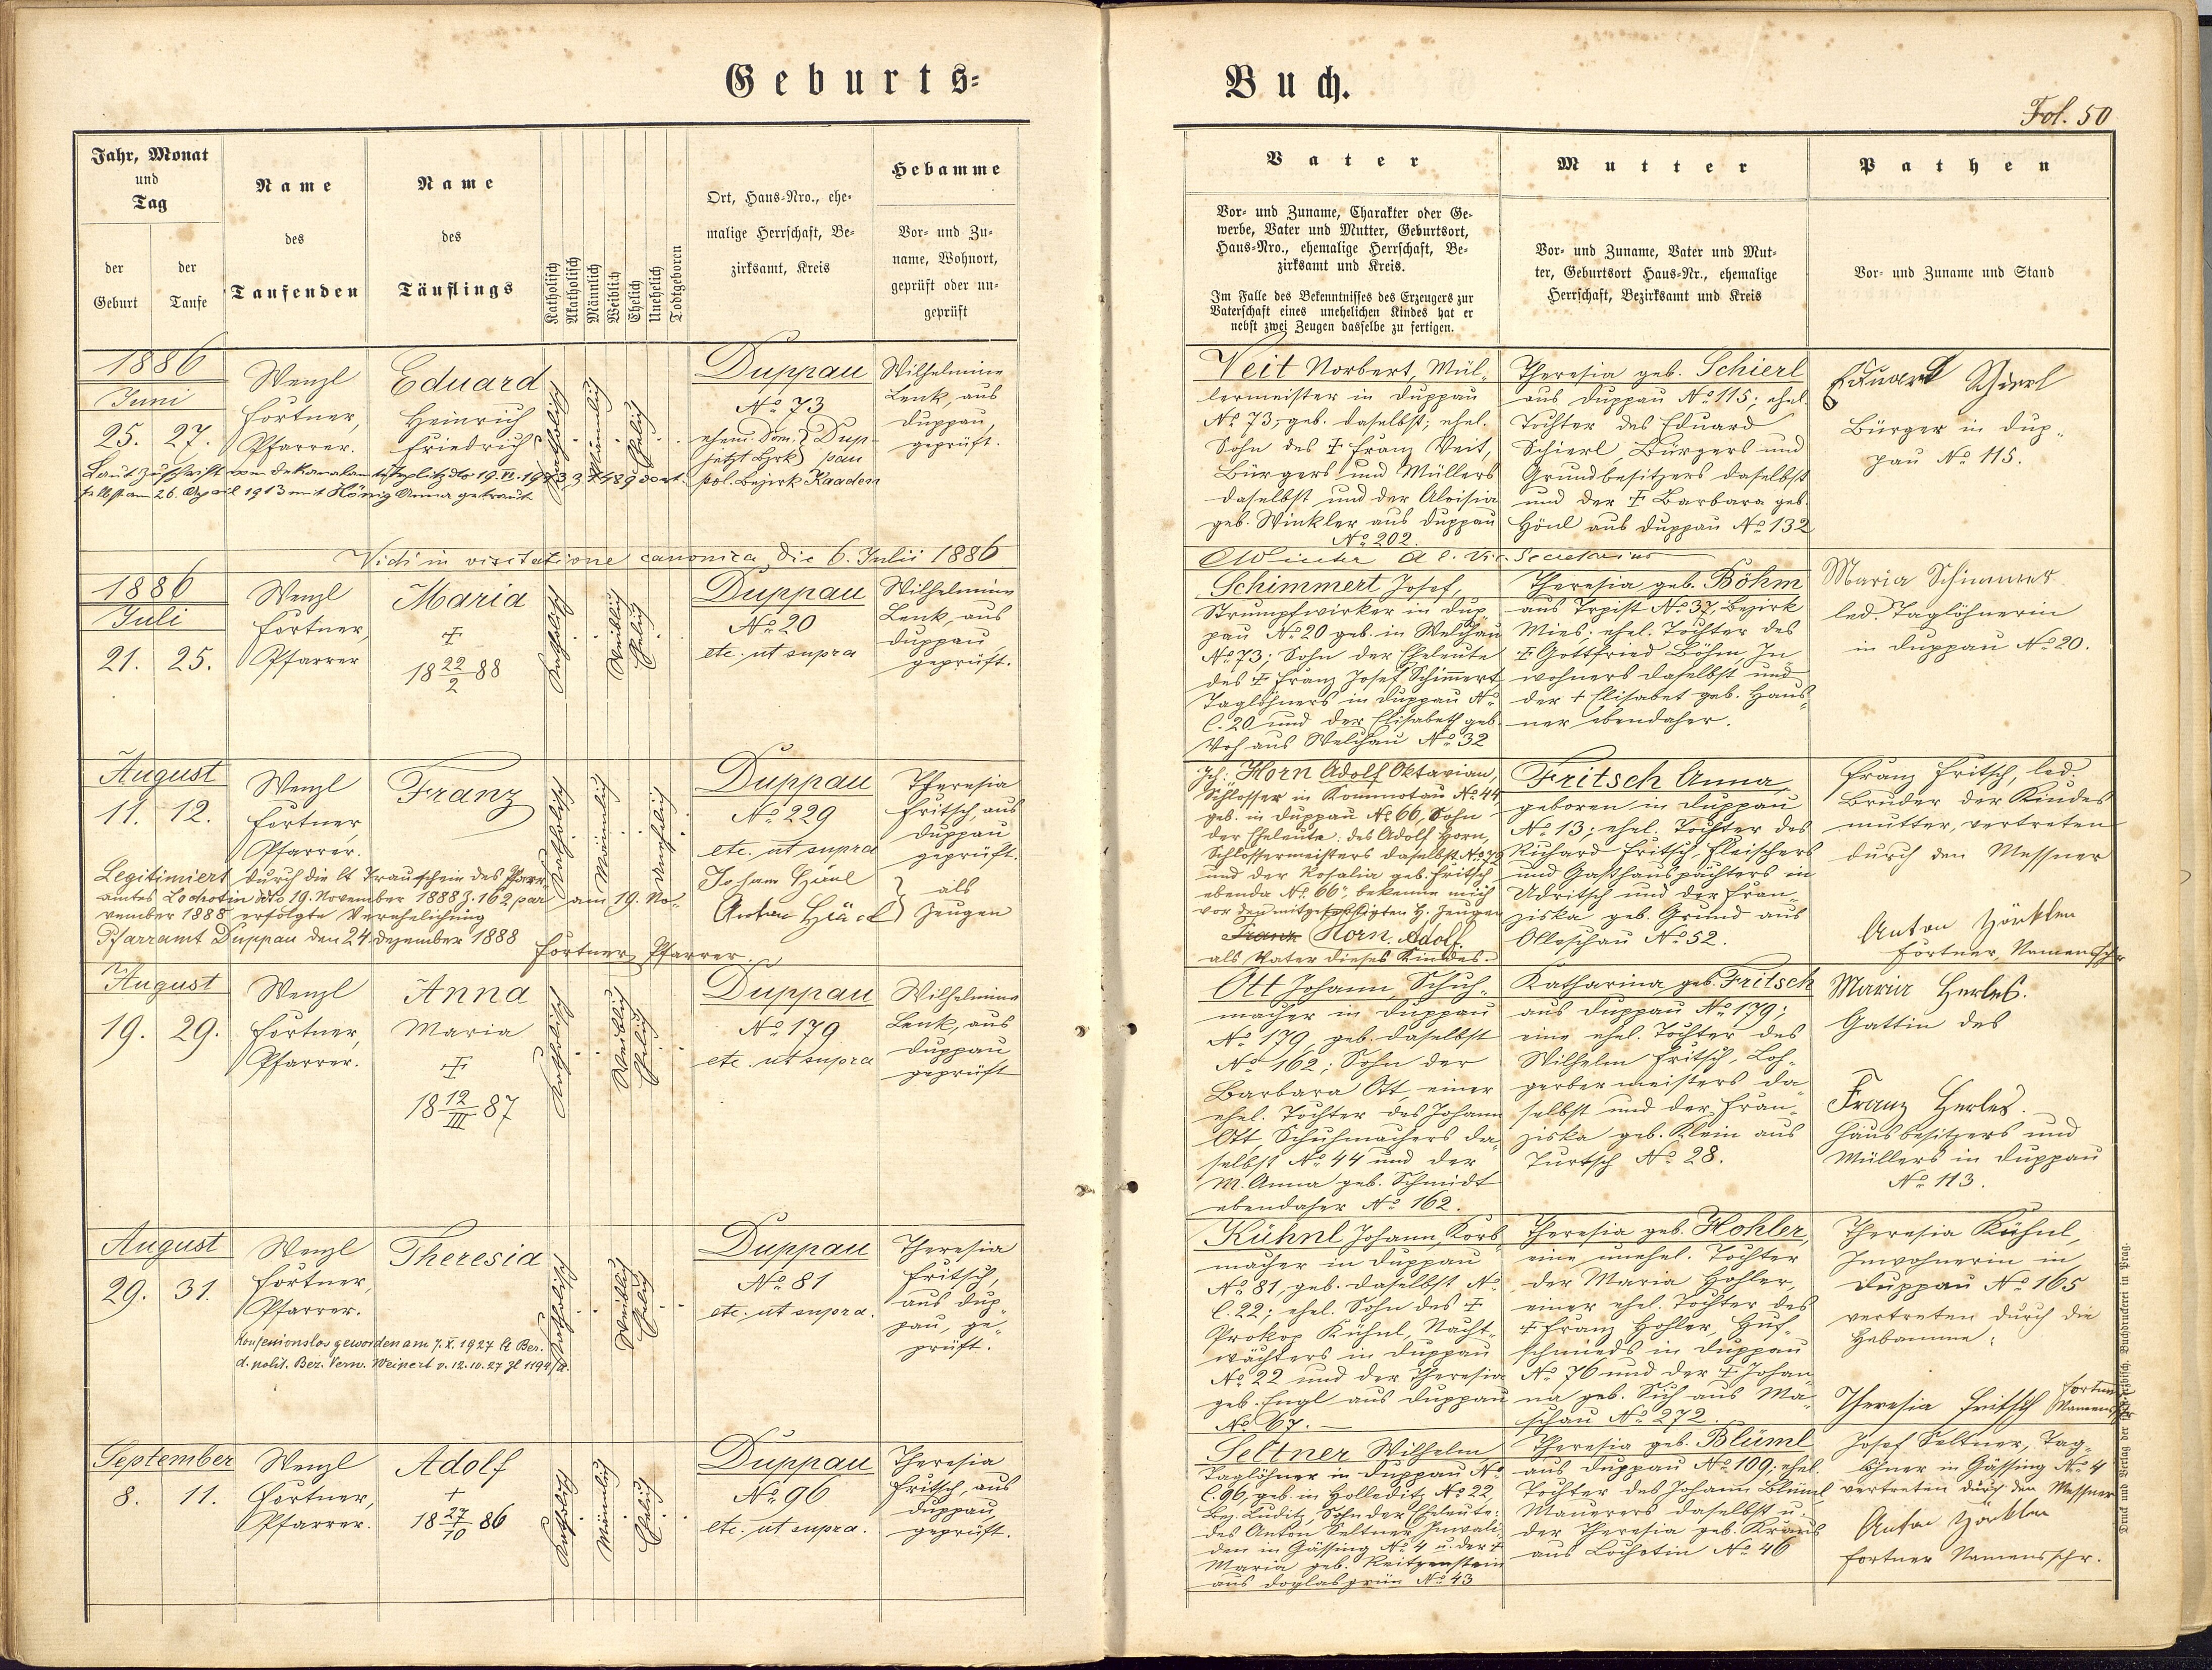 Geburts-
Buch.
Fol. 50
Jahr, Monat
und
Tag
der
Geburt
der
Taufe
Name
des
Taufenden
Name
des
Täuflings
Katholisch
Akatholisch
Männlich
Weiblich
Ehelich
Unehelich
Todtgeboren
Ort, Haus-Nro., ehe-
malige Herrschaft, Be-
zirksamt, Kreis
Hebamme
Vor- und Zu-
name, Wohnort,
geprüft oder un-
geprüft
Vater
Vor- und Zuname, Charakter oder Ge-
werbe, Vater und Mutter, Geburtsort,
Haus-Nro., ehemalige Herrschaft, Be-
zirksamt und Kreis.
Im Falle des Bekenntnisses des Erzeugers zur
Vaterschaft eines unehelichen Kindes hat er
nebst zwei Zeugen dasselbe zu fertigen.
Mutter
Vor- und Zuname, Vater und Mut-
ter, Geburtsort Haus-Nr., ehemalige
Herrschaft, Bezirksamt und Kreis
Pathen
Vor- und Zuname und Stand
1886
Juni
25. 27.
Wenzl
Fortner,
Pfarrer.
Eduard
Heinrich
Friedrich
Katholisch
Männlich
Ehelich
Duppau
No. 73
ehem. Dom. } Dup-
jetzt Bzrk } pau
pol. Bezirk Kaaden
Wilhelmine
Lenk, aus
Duppau,
geprüft.
Laut Zuschrift vom Dekanalamte Teplitz dto 19. VI. 1913
selbst am 26. April 1913 mit König Anna getraut
Veit Norbert, Mül-
lermeister in Duppau
No. 73, geb. daselbst; ehel.
Sohn des † Franz Veit,
Bürgers und Müllers
daselbst und der Aloisia
geb. Winkler aus Duppau
No. 202.
Theresia geb. Schierl
aus Duppau No. 115; ehel.
Tochter des Eduard
Schierl, Bürgers und
Grundbesitzers daselbst
und der † Barbara geb.
Hönl aus Duppau No. 132
Eduard Schierl
Bürger in Dup-
pau No. 115.
Vidi in visitatione canonica die 6. Julii 1886
Winter Secretarius
1886
Juli
21. 25.
Wenzl
Fortner,
Pfarrer
Maria
†
18 22/2 88
Katholisch
Weiblich
Ehelich
Duppau
No. 20
etc. ut supra
Wilhelmine
Lenk, aus
Duppau,
geprüft.
Schimmert Josef,
Strumpfwirker in Dup-
pau No. 20 geb. in Welchau
No. 73; Sohn der Eheleute
des † Franz Josef Schimmert
Taglöhners in Duppau No.
C. 20 und der Elisabeth geb.
aus Welchau No. 32
Theresia geb. Böhm
aus Trpist No. 37, Bezirk
Mies; ehel. Tochter des
† Gottfried Böhm, In-
wohners daselbst und
der † Elisabet geb. Haus-
ner ebendaher.
Maria Schimmert
led. Taglöhnerin
in Duppau No. 20.
August
11. 12.
Wenzl
Fortner,
Pfarrer.
Franz
Katholisch
Männlich
Unehelich
Duppau
No. 229
etc. ut supra
Theresia
Fritsch, aus
Duppau
geprüft.
Legitimiert durch die lt Trauschein des Pfarr-
amtes Lochotin ddto 19. November 1888 Z. 162 par am 19. No-
vember 1888 erfolgte Verehelichung
Pfarramt Duppau den 24. Dezember 1888
Fortner, Pfarrer.
Johann
Anton
} als
Zeugen
Ich: Horn Adolf Oktavian,
Schlosser in Kommotau No. 44
geb. in Duppau No. 66, Sohn
der Eheleute: des Adolf Horn,
Schlossermeisters daselbst No. 79
und der Rosalia geb. Fritsch
ebenda No. 66: bekenne mich
vor den mitgefertigten H. Zeugen
Frank Horn Adolf.
als Vater dieses Kindes.
Fritsch Anna,
geboren in Duppau
No. 13; ehel. Tochter des
Richard Fritsch, Fleischers
und Gasthauspächters in
Udritsch und der Fran-
ziska geb. Grund aus
Olleschau No. 52.
Franz Fritsch, led.
Bruder der Kindes
mutter, vertreten
durch den Messner
Anton
Fortner, Namensschr
August
19. 29.
Wenzl
Fortner,
Pfarrer.
Anna
Maria
†
18 12/III 87
Katholisch
Weiblich
Ehelich
Duppau
No. 179
etc. ut supra
Wilhelmine
Lenk, aus
Duppau
geprüft
Ott Johann, Schuh-
macher in Duppau
No. 179, geb. daselbst
No. 162; Sohn der
Barbara Ott, einer
ehel. Tochter des Johann
Ott, Schuhmachers da-
selbst No. 44 und der
M. Anna geb. Schmidt
ebendaher No. 162.
Katharina geb. Fritsch
aus Duppau No. 179;
eine ehel. Tochter des
Wilhelm Fritsch, Loh-
gerbermeisters da-
selbst und der Fran-
ziska geb. Klein aus
Turtsch No. 28.
Maria Herles.
Gattin des
Franz Herles.
Hausbesitzers und
Müllers in Duppau
No. 113.
August
29. 31.
Wenzl
Fortner,
Pfarrer.
Theresia
Katholisch
Weiblich
Ehelich
Duppau
No. 81
etc. ut supra.
Theresia
Fritsch,
aus Dup-
pau, ge-
prüft.
Konfessionslos geworden am 7. X. 1927 lt Ber.
d. polit. Bez. Verw. Weipert v. 12.10.27 Zl 1194/2
Kühnl Johann, Korb-
macher in Duppau
No. 81, geb. daselbst No.
C. 22; ehel. Sohn des †
Prokop Kühnl, Nacht-
wächters in Duppau
No. 22 und der Theresia
geb. Engl aus Duppau
No. 67.
Theresia geb. Hohler,
eine unehel. Tochter
der Maria Hohler,
einer ehel. Tochter des
† Franz Hohler, Huf-
schmieds in Duppau
No. 76 und der † Johan-
na geb. Sich aus Ma-
schau No. 272.
Theresia Kühnl,
Inwohnerin in
Duppau No. 165
vertreten durch die
Hebamme:
Theresia Fritsch
Fortner
Namensschr
September
8. 11.
Wenzl
Fortner,
Pfarrer.
Adolf
†
18 27/10 86
Katholisch
Männlich
Ehelich
Duppau
No. 96
etc. ut supra.
Theresia
Fritsch, aus
Duppau,
geprüft.
Seltner Wilhelm
Taglöhner in Duppau No.
C. 96, geb. in Holleditz No. 22
Bez. Luditz, Sohn der Eheleute:
des Anton Seltner, Invali-
den in Gässing No. 4 u. der †
Maria geb. Reitzenstein
aus Doglasgrün No. 43
Theresia geb. Blüml
aus Duppau No. 109; ehel.
Tochter des Johann Blüml,
Maurers daselbst u.
der Theresia geb. Kraus
aus Lochotin No. 46
Josef Seltner, Tag-
löhner in Gässing No. 4
vertreten durch den Messner
Anton
Fortner Namensschr.